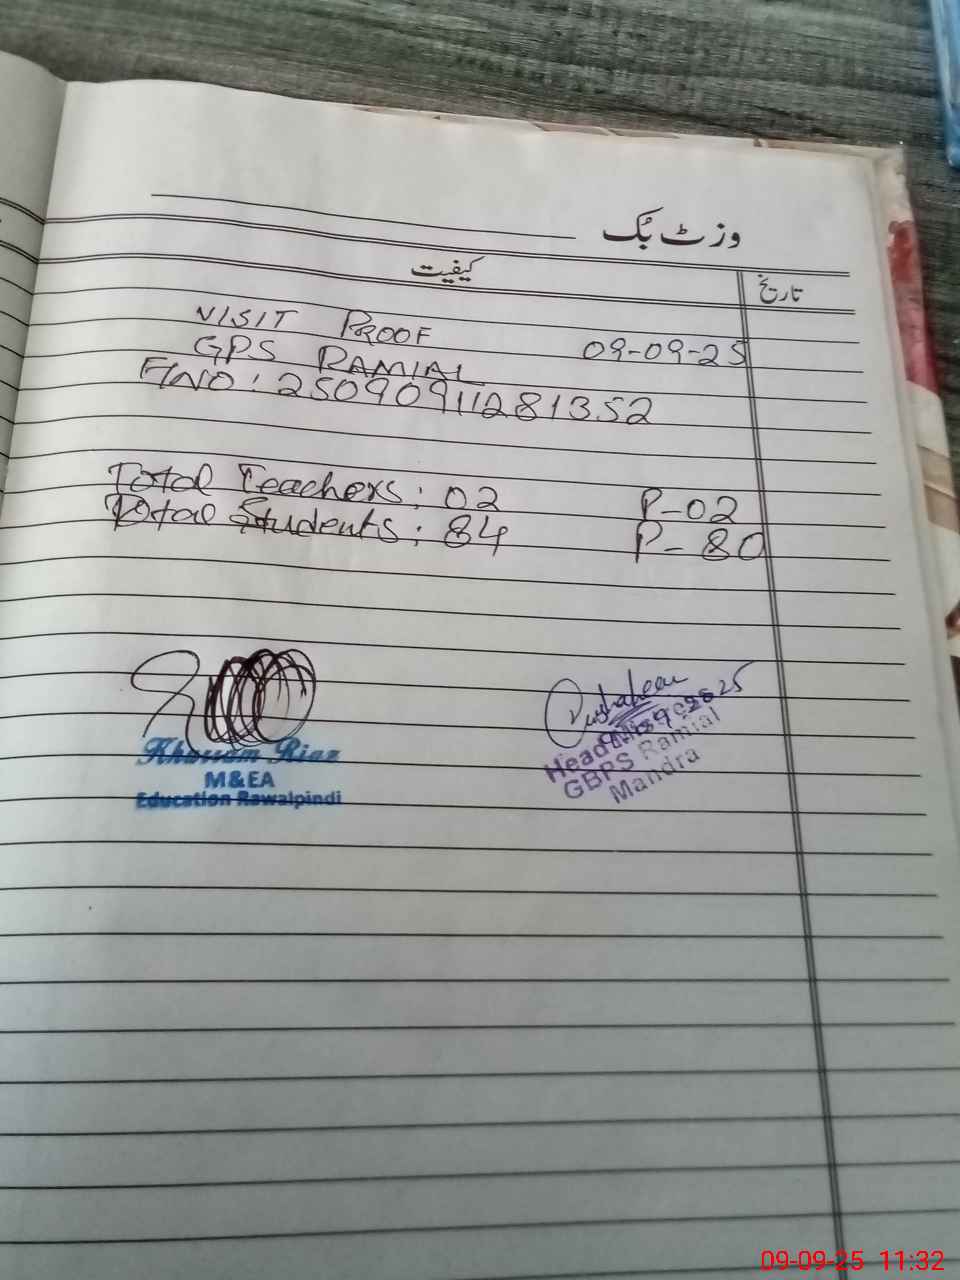 وزٹ بُک
تاریخ کیفیت
VISIT PROOF 09-09-25
GPS RAMIAL
F/NO: 25090911281352
Total Teachers: 02 P-02
Total Students: 84 P-80
Khurram Riaz
M&EA
Education Rawalpindi
Headmistress
GBPS Ramial
Mandra
09-09-25 11:32